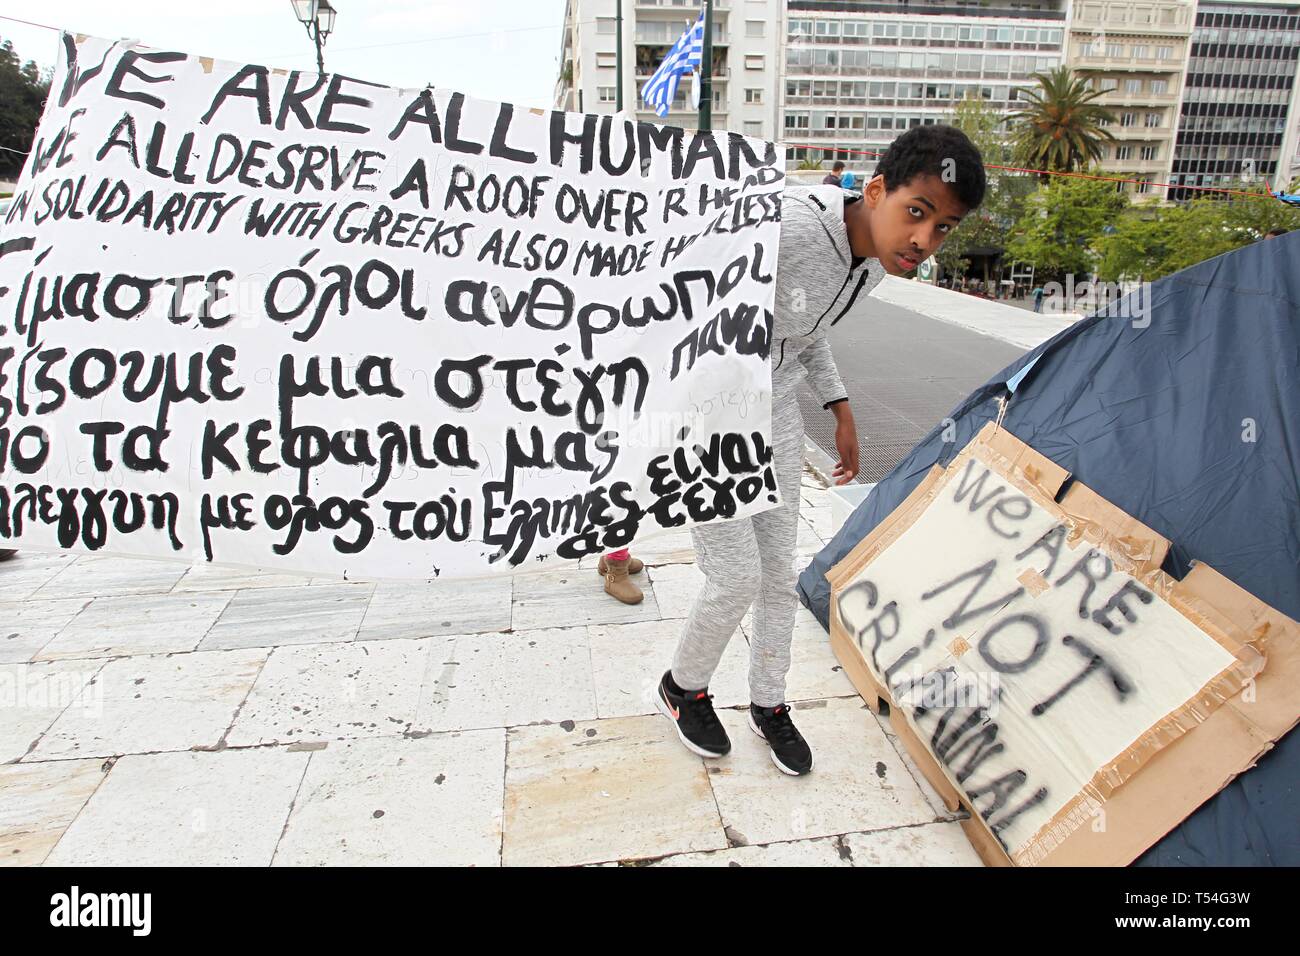 WE ARE ALL HUMAN
WE ALL DESRVE A ROOF OVER 'R HEAD
IN SOLIDARITY WITH GREEKS ALSO MADE H LESS
Είμαστε όλοι ανθρωποι
ξίζουμε μια στέγη πανω
πο τα κεφαλια μας
λλεγγυη με ολος τού Ελληνες είναι
άστεγο!
We ARE
NOT
CRiMiNNAL
alamy
Image ID: T54G3W
www.alamy.com